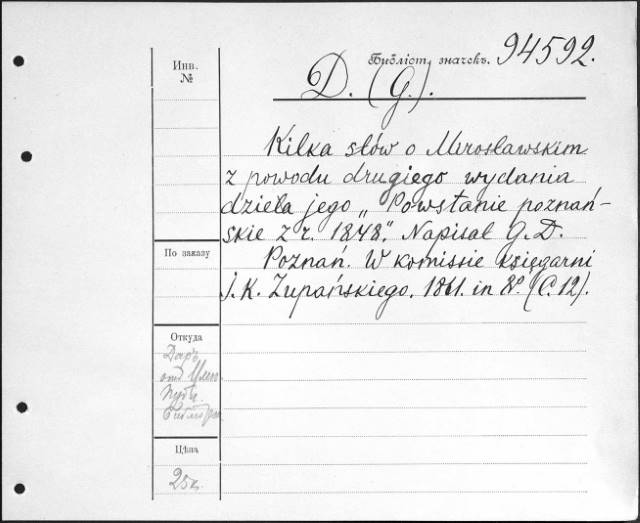 Инв.
№
Библіот. значекъ. 94592.
D. (G.).
Kilka słów o Mierosławskim
z powodu drugiego wydania
dzieła jego „Powstanie poznań-
skie z r. 1848." Napisał G. D.
Poznań. W komissie księgarni
J. K. Żupańskiego. 1861. in 8º. (C. 12).
По заказу
Откуда
Даръ
отъ
Публ.
Цѣна
25к.